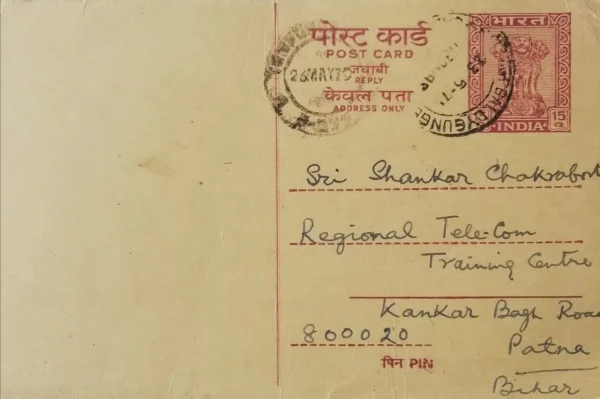 पोस्ट कार्ड
POST CARD
जवाबी
REPLY
केवल पता
ADDRESS ONLY
26 MAY 75
BALLYGUNGE
भारत
15
INDIA
Sri Shankar Chakrabort
Regional Tele-Com
Training Centre
Kankar Bagh Road
800020
Patna
पिन PIN
Bihar